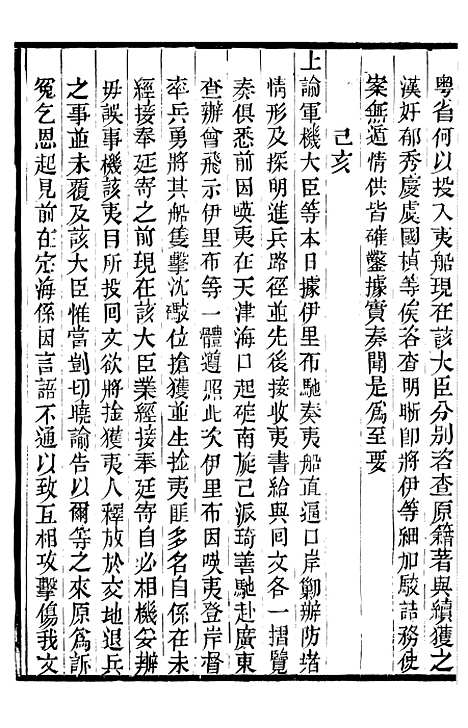 粤省何以投入夷船現在該大臣分別咨查原籍著與續獲之
漢奸郁秀慶虞國楨等俟咨查明晰卽將伊等細加駮詰務使
案無遁情供皆確鑿據實奏聞是爲至要
己亥
上諭軍機大臣等本日據伊里布馳奏夷船直逼口岸勦辦防堵
情形及探明進兵路徑並先後接收夷書給與回文各一摺覽
奏俱悉前因㗸夷在天津海口起碇南旋已派琦善馳赴廣東
查辦曾飛示伊里布等一體遵照此次伊里布因㗸夷登岸督
率兵勇將其船隻擊沈礮位搶獲並生捡夷匪多名自係在未
經接奉廷寄之前現在該大臣業經接奉廷寄自必相機妥辦
毋誤事機該夷目所投回文欲將捡獲夷人釋放於交地退兵
之事並未覆及該大臣惟當剴切曉諭告以爾等之來原爲訴
冤乞恩起見前在定海係因言語不通以致互相攻擊傷我文